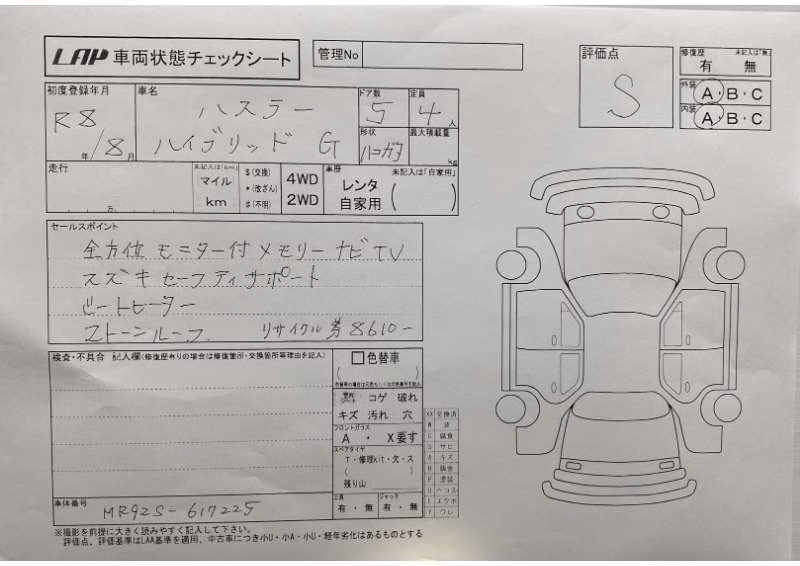 LAP 車両状態チェックシート
管理No
評価点
S
修復歴 未記入は「無」
有 無
外装 A・B・C
内装 A・B・C
初度登録年月
R8
年/8月
車名
ハスラー
ハイブリッド G
ドア数
5
定員
4人
形状
ハコガタ
最大積載量
kg
走行
万
未記入は「km」
マイル
km
$(交換)
*(改ざん)
#(不明)
4WD
2WD
車歴 未記入は「自家用」
レンタ
自家用
セールスポイント
全方位モニター付メモリーナビTV
スズキセーフティサポート
シートヒーター
ストーンルーフ リサイクル券8610-
検査・不具合 記入欄(修復歴有りの場合は修復箇所・交換箇所等理由を記入)
色替車
コゲ 破れ
キズ 汚れ 穴
フロントガラス
A ・ X要す
スペアタイヤ
T・修理kit・欠・ス
残り山
工具
有・無
ジャッキ
有・無
XX 交換済
車体番号
MR92S-617225
※撮影を前提に大きく読みやすく記入して下さい。
評価点、評価基準はLAA基準を適用、中古車につき小U・小A・小U・経年劣化はあるものとする